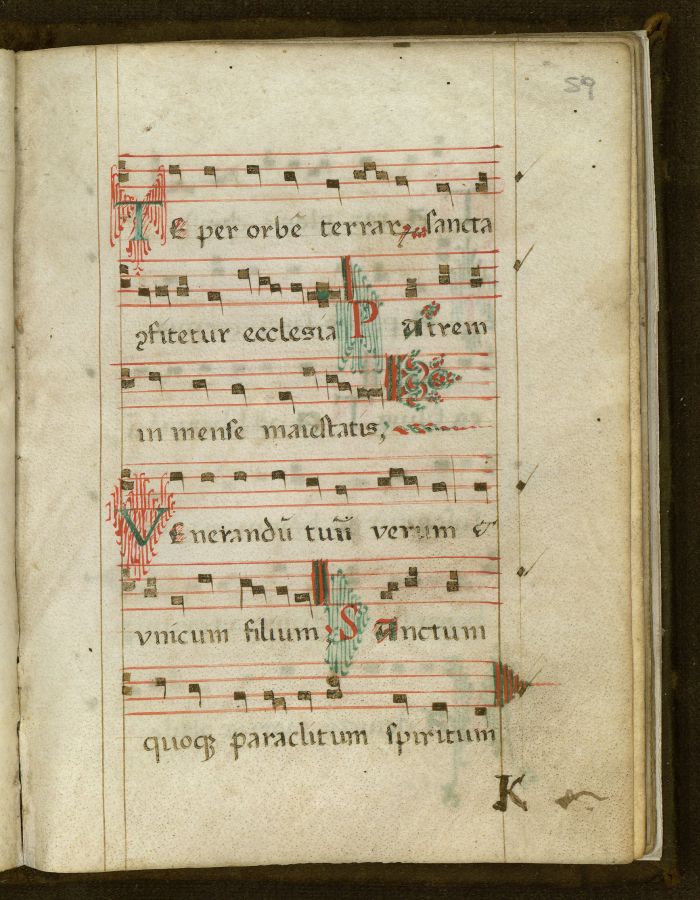 59
TE per orbē terrarꝝ sancta
ꝯfitetur ecclesia Patrem
in mense maiestatis,
VEnerandū tuū verum &
vnicum filium Sanctum
quoqꝫ paraclitum spiritum
K